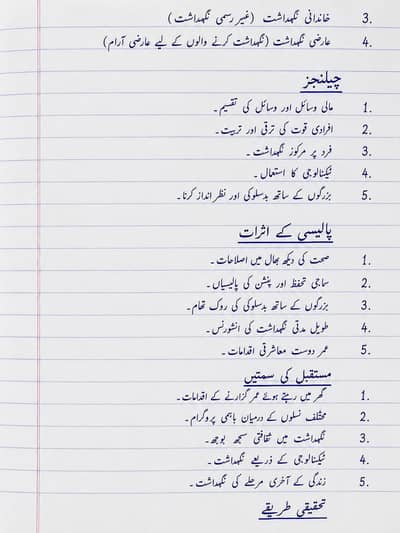 3. خاندانی نگہداشت (غیر رسمی نگہداشت)
4. عارضی نگہداشت (نگہداشت کرنے والوں کے لیے عارضی آرام)
چیلنجز
1. مالی وسائل اور وسائل کی تقسیم۔
2. افرادی قوت کی ترقی اور تربیت۔
3. فرد پر مرکوز نگہداشت۔
4. ٹیکنالوجی کا استعمال۔
5. بزرگوں کے ساتھ بدسلوکی اور نظر انداز کرنا۔
پالیسی کے اثرات
1. صحت کی دیکھ بھال میں اصلاحات۔
2. سماجی تحفظ اور پنشن کی پالیسیاں۔
3. بزرگوں کے ساتھ بدسلوکی کی روک تھام۔
4. طویل مدتی نگہداشت کی انشورنس۔
5. عمر دوست معاشرتی اقدامات۔
مستقبل کی سمتیں
1. گھر میں رہتے ہوئے عمر گزارنے کے اقدامات۔
2. مختلف نسلوں کے درمیان باہمی پروگرام۔
3. نگہداشت میں ثقافتی سمجھ بوجھ۔
4. ٹیکنالوجی کے ذریعے نگہداشت۔
5. زندگی کے آخری مرحلے کی نگہداشت۔
تحقیقی طریقے